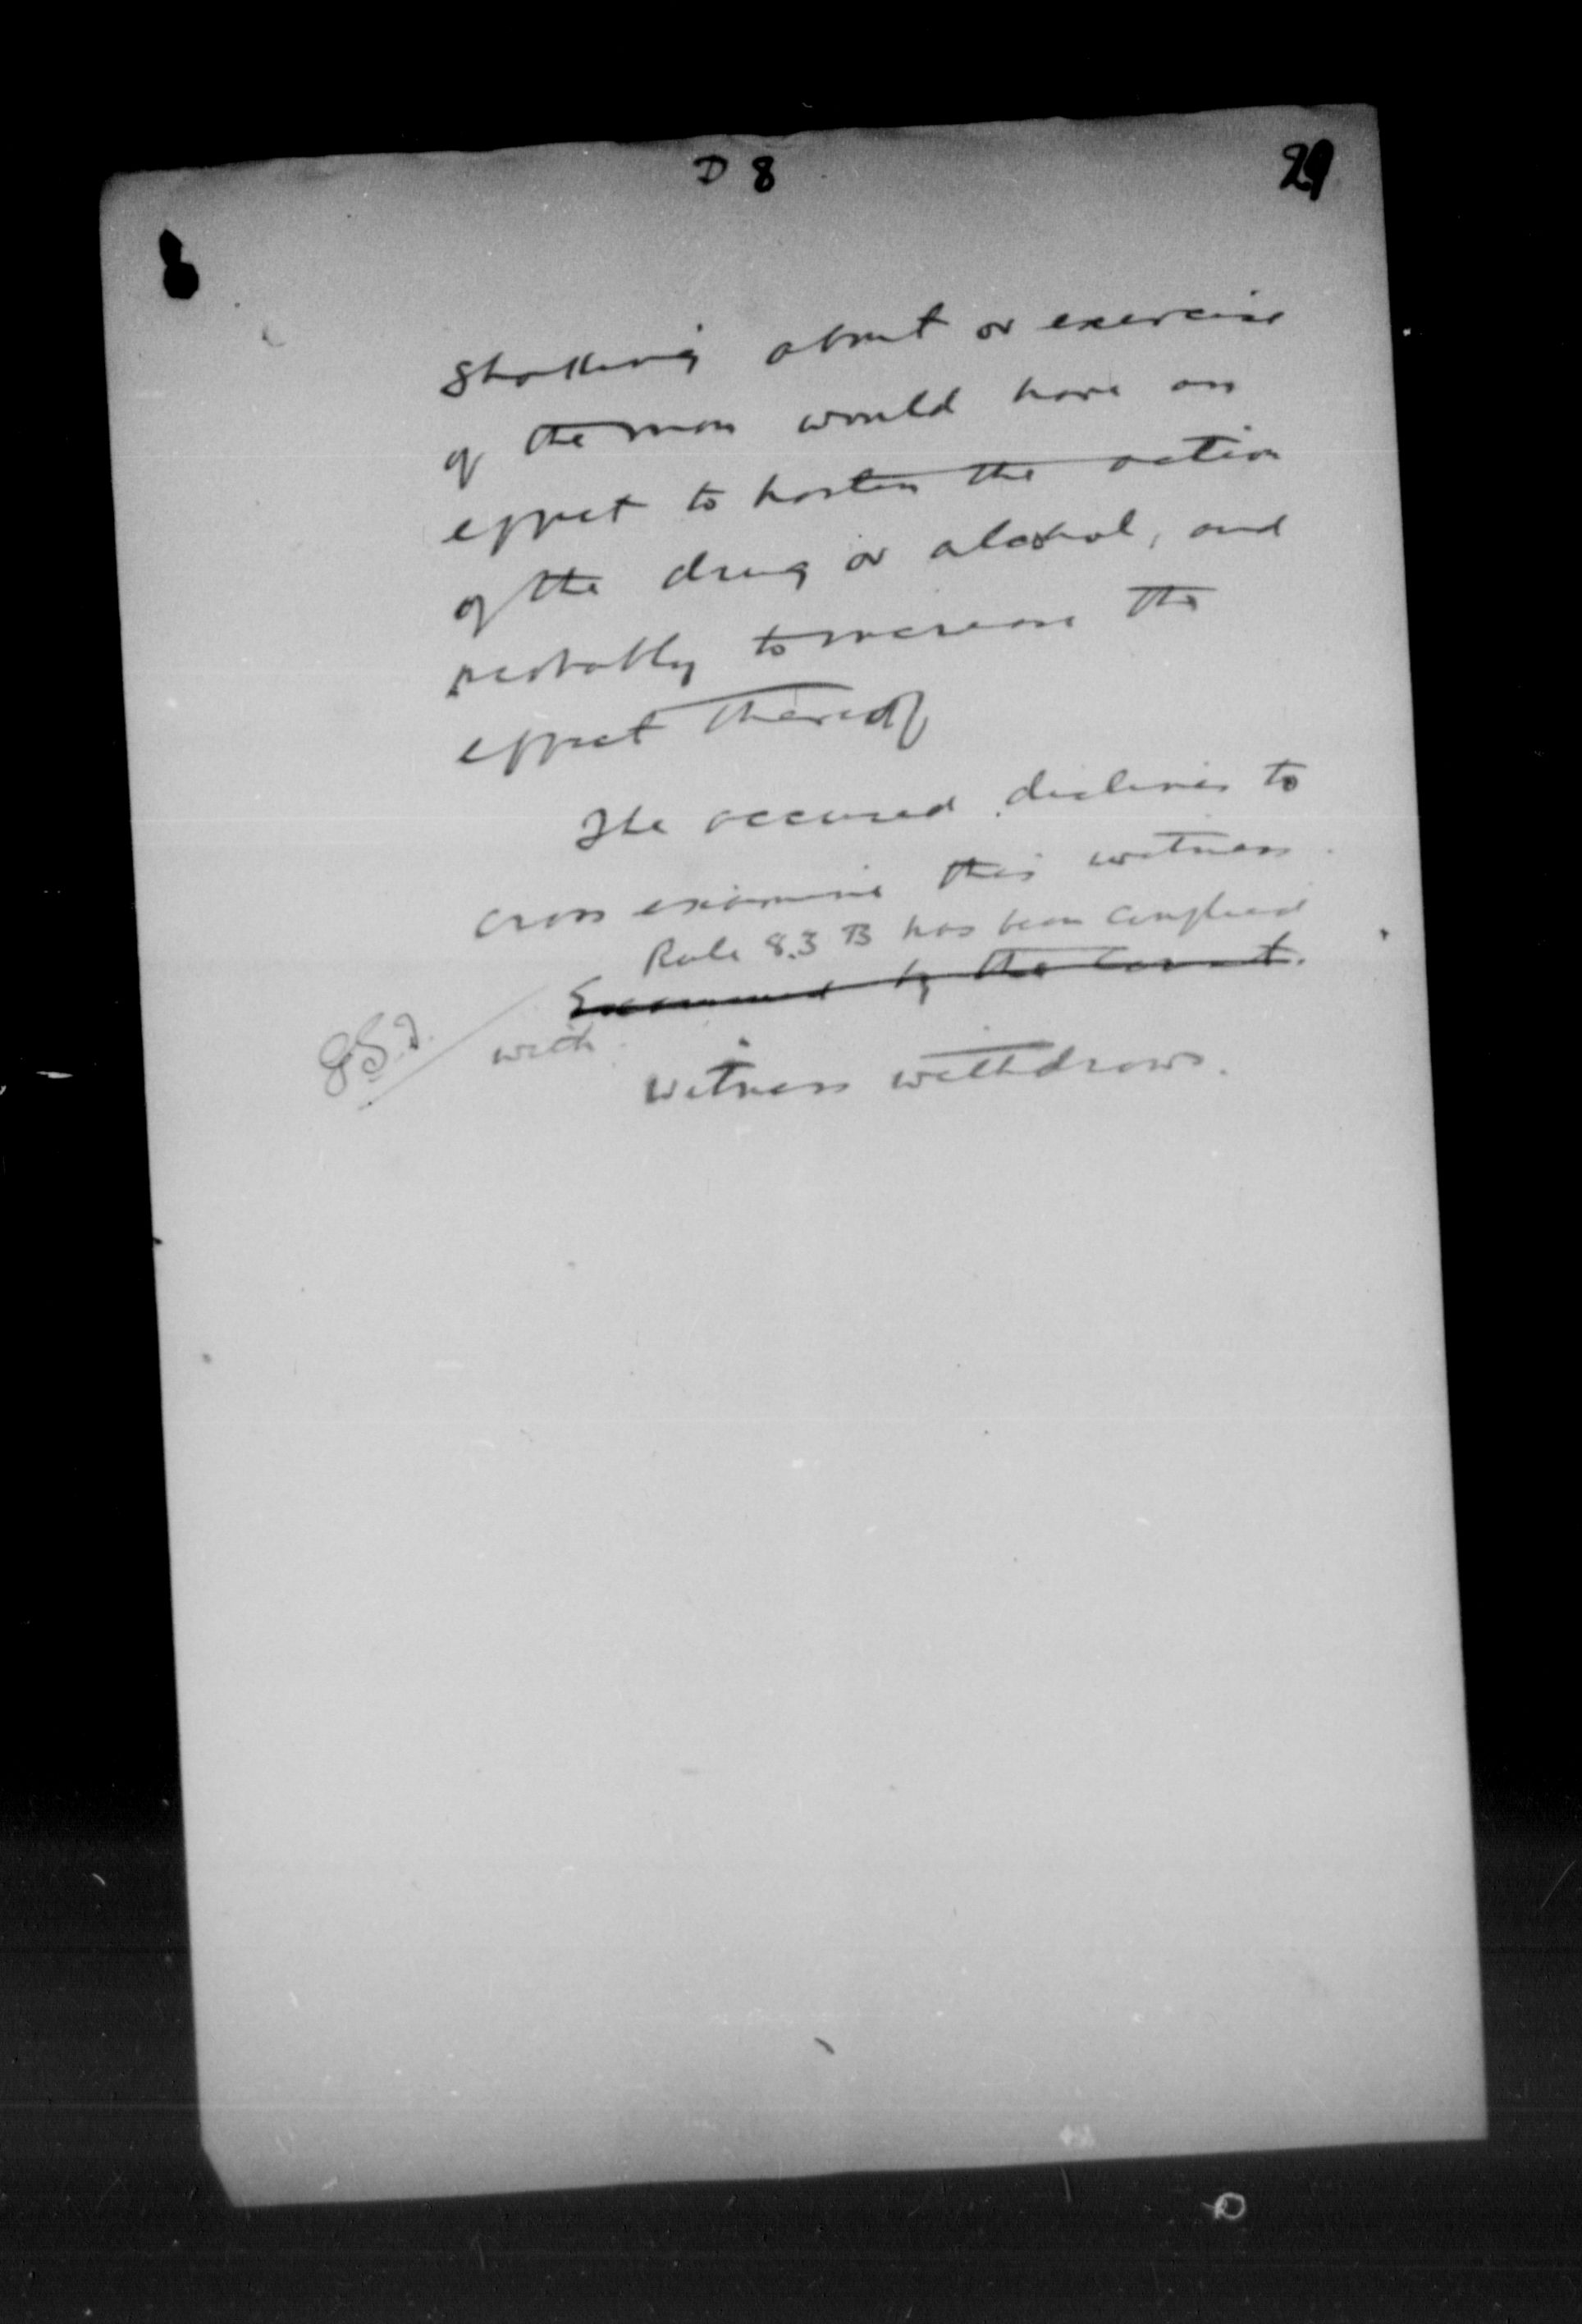 D 8
29
Shaking about or exercise
of the man would have an
effect to hasten the action
of the drug or alcohol, and
probably to increase the
effect thereof
The accused declines to
cross examine this witness.
Rule 83 B has been complied
Examined by the Court.
with.
Witness withdraws.